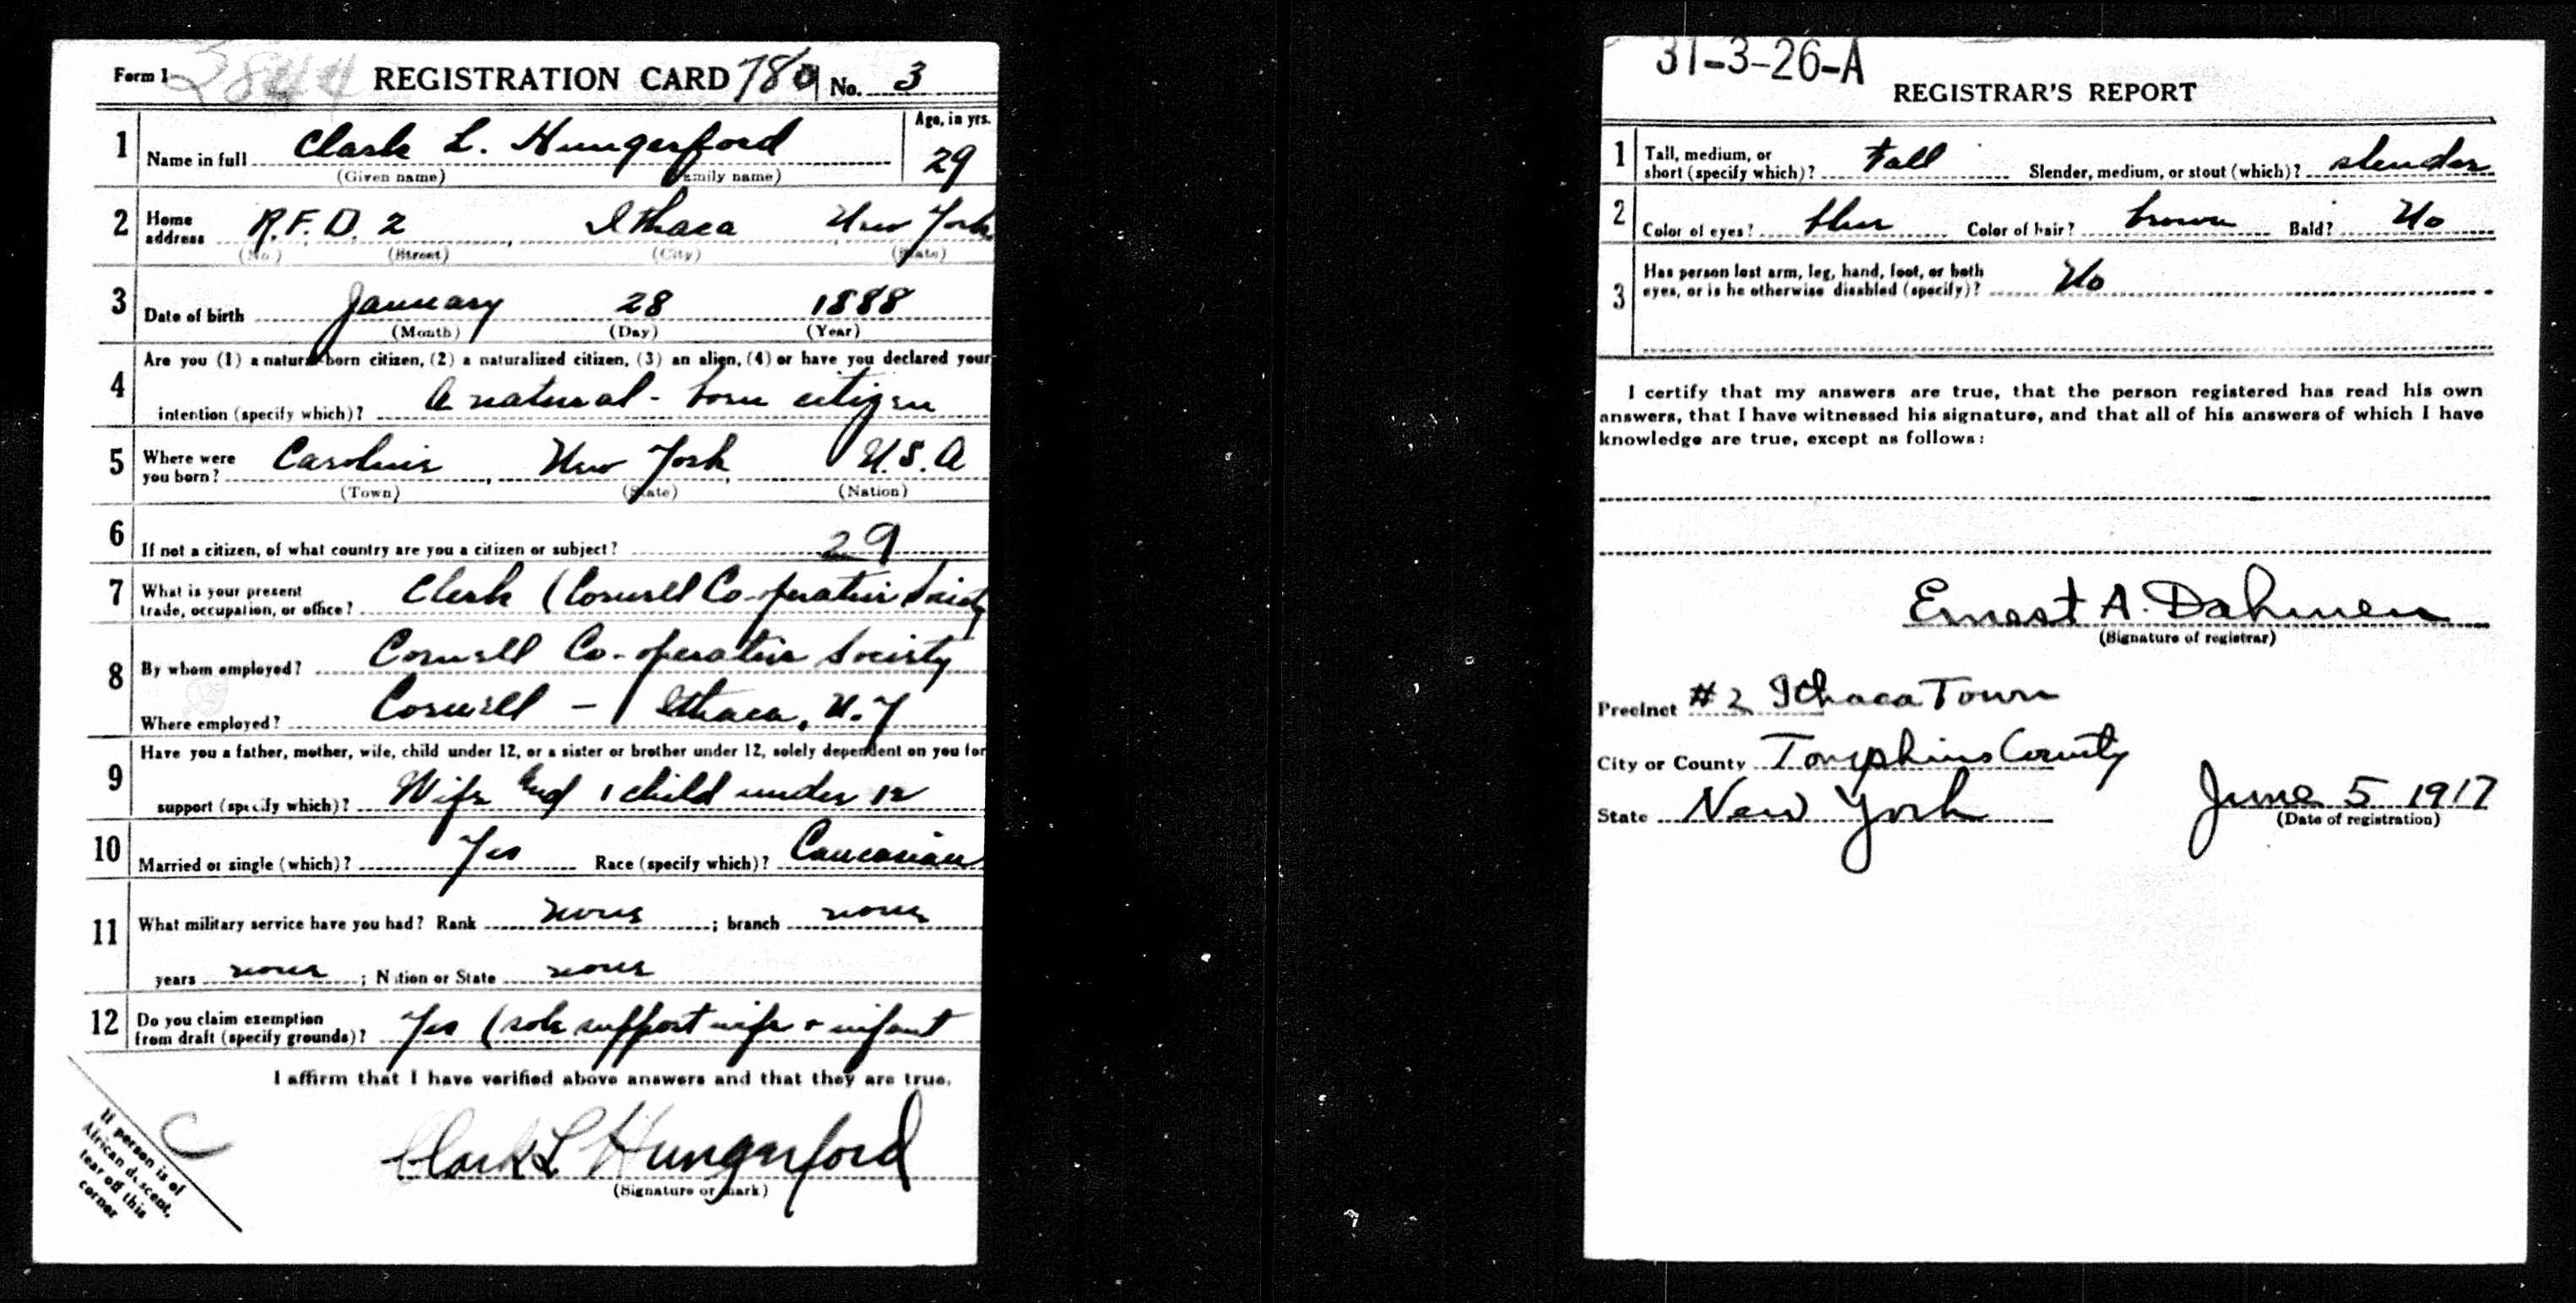 Form 1 2844 REGISTRATION CARD 789 No. 3
1 Name in full Clark L. Hungerford Age, in yrs. 29
(Given name) (Family name)
2 Home address R.F.D. 2 Ithaca New York
(No.) (Street) (City) (State)
3 Date of birth January 28 1888
(Month) (Day) (Year)
4 Are you (1) a natural-born citizen, (2) a naturalized citizen, (3) an alien, (4) or have you declared your
intention (specify which)? A natural-born citizen
5 Where were you born? Caroline New York U.S.A
(Town) (State) (Nation)
6 If not a citizen, of what country are you a citizen or subject? 29
7 What is your present trade, occupation, or office? Clerk (Cornell Co-operative Society
8 By whom employed? Cornell Co-operative Society
Where employed? Cornell - Ithaca, N.Y
9 Have you a father, mother, wife, child under 12, or a sister or brother under 12, solely dependent on you for
support (specify which)? Wife and 1 child under 12
10 Married or single (which)? Yes Race (specify which)? Caucasian
11 What military service have you had? Rank none ; branch none
years none ; Nation or State none
12 Do you claim exemption from draft (specify grounds)? Yes (sole support wife + infant
I affirm that I have verified above answers and that they are true.
Clark L Hungerford
(Signature or mark)
If person is of
African descent,
tear off this
corner
C
31-3-26-A
REGISTRAR'S REPORT
1 Tall, medium, or short (specify which)? Tall Slender, medium, or stout (which)? slender
2 Color of eyes? blue Color of hair? brown Bald? No
3 Has person lost arm, leg, hand, foot, or both
eyes, or is he otherwise disabled (specify)? No
I certify that my answers are true, that the person registered has read his own
answers, that I have witnessed his signature, and that all of his answers of which I have
knowledge are true, except as follows:
Ernest A. Dahmen
(Signature of registrar)
Precinct #2 Ithaca Town
City or County Tompkins County
State New York June 5 1917
(Date of registration)